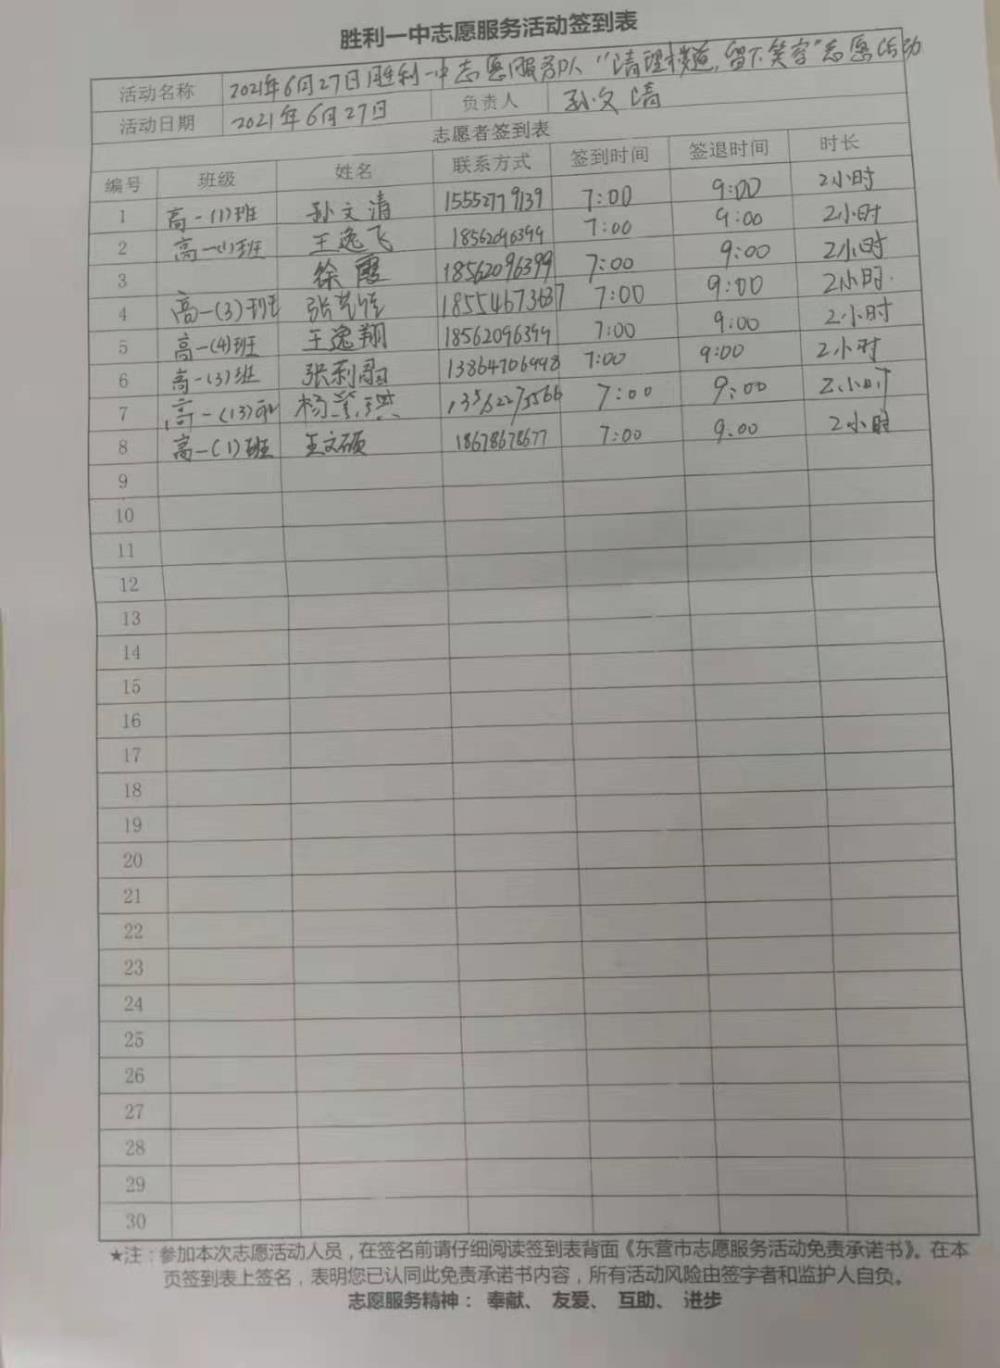 胜利一中志愿服务活动签到表
活动名称 2021年6月27日胜利一中志愿服务队“清理楼道,留下笑容”志愿活动
活动日期 2021年6月27日 负责人 孙文清
志愿者签到表
编号 班级 姓名 联系方式 签到时间 签退时间 时长
1 高一(1)班 孙文清 15552779139 7:00 9:00 2小时
2 高一(1)班 王逸飞 18562096399 7:00 9:00 2小时
3 徐霞 18562096399 7:00 9:00 2小时
4 高一(3)班 18554673637 7:00 9:00 2小时.
5 高一(4)班 王逸翔 18562096399 7:00 9:00 2小时
6 高一(3)班 13864706998 7:00 9:00 2小时
7 高一(13)班 7:00 9:00 2小时
8 高一(1)班 王文硕 18678678677 7:00 9.00 2小时
9
10
11
12
13
14
15
16
17
18
19
20
21
22
23
24
25
26
27
28
29
30
★注：参加本次志愿活动人员，在签名前请仔细阅读签到表背面《东营市志愿服务活动免责承诺书》。在本
页签到表上签名，表明您已认同此免责承诺书内容，所有活动风险由签字者和监护人自负。
志愿服务精神： 奉献、 友爱、 互助、 进步